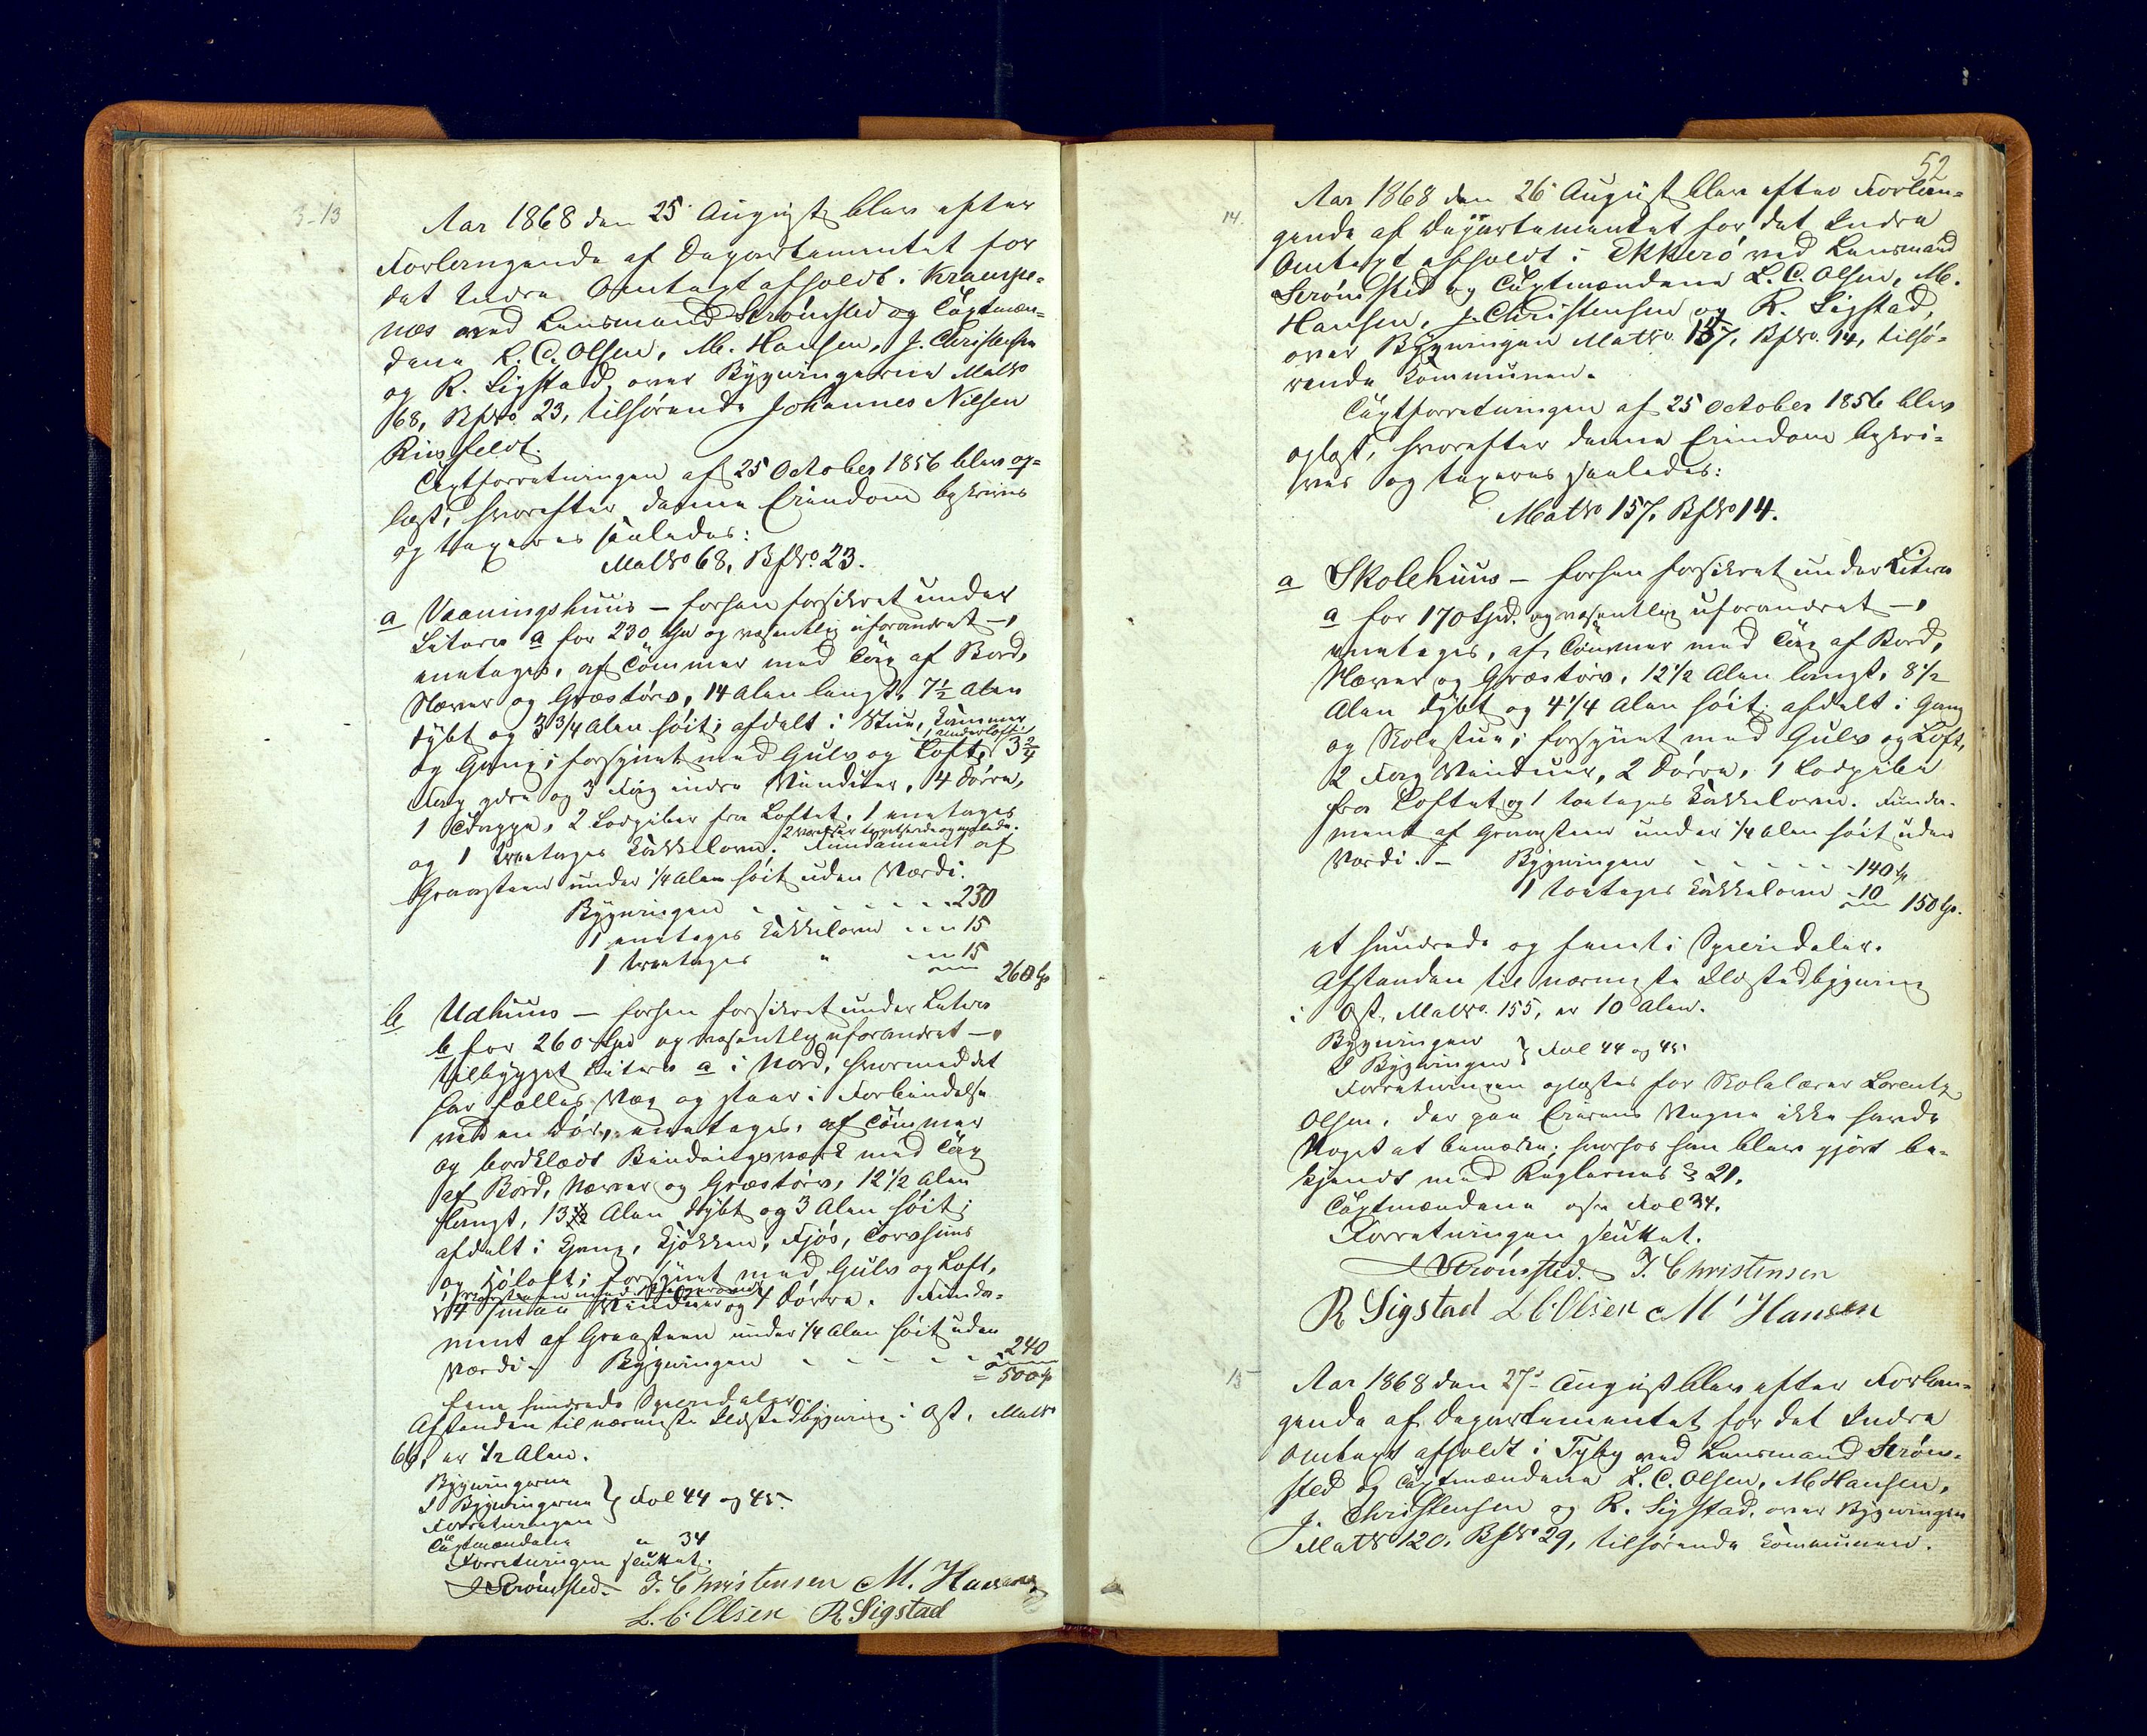 3-13
Aar 1868 den 25 August blev efter
Forlangende af Departementet for
det Indre Omtaxt afholdt i Krampe-
næs ved Lensmand Strømsted og Taxtmæn-
dene L. C. Olsen, M. Hansen, J. Christensen
og R. Sigstad, over Bygningerne Matr
68, Bfno. 23, tilhørende Johannes Nilsen
Taxtforretningen af 25 October 1856 blev op-
læst, hvorefter denne Eiendom beskrives
og taxeres saaledes:
Matro 68, Bfno. 23.
a Vaaningshuus – forhen forsikret under
Litera a for 230 Spd og væsentlig uforandret –,
enetages, af Tømmer med Tag af Bord,
Næver og Græstørv, 14 Alen langt, 7 1/2 Alen
dybt og 3 3/4 Alen høit; afdelt i Stue, Kammer
og Gang; forsynet med Gulv og Loft, 1 Underloft, 3 2/4
Fag ydre og 3 Fag indre Vinduer, 4 Dørre,
1 Trappe, 2 Lodpiber fra Loftet, 1 enetages
og 1 treetages Kakkelovn. 2 Værelser
Fundament af
Graasteen under 1/4 Alen høit uden Værdi.
Bygningen - - - - - - 230
1 enetages Kakkelovn - - - 15
1 treetages " - - - 15
260 Sp
b Udhuus – forhen forsikret under Litera
b for 260 Spd og væsentlig uforandret –,
tilbygget Litera a i Nord, hvormed det
har fælles Væg og staar i Forbindelse
ved en Dør, enetages, af Tømmer
og bordklædt Bindingsværk med Tag
af Bord, Næver og Græstørv, 12 1/2 Alen
langt, 13 Alen dybt og 3 Alen høit;
afdelt i Gang, Kjøkken, Fjøs, Torvhuus
og Høloft; forsynet med Gulv og Loft,
1 Skorsteen med
4 smaa Vinduer og 7 Dørre. Funda-
ment af Graasteen under 1/4 Alen høit uden
Værdi – Bygningen - - - - - 240
= 500 Sp
fem hundrede Speciedaler.
Afstanden til nærmeste Ildstedbygning i Øst, Matr
66, er 1/2 Alen.
Bygningerne
I Bygningerne } Fol 44 og 45.
Forretningen
Taxtmændene " 34
Forretningen sluttet.
Strømsted. J. Christensen M. Hansen
L. C. Olsen R Sigstad
52
14.
Aar 1868 den 26 August blev efter Forlan-
gende af Departementet for det Indre
Omtaxt afholdt i Ekkerø ved Lensmand
Strømsted og Taxtmændene L. C. Olsen, M.
Hansen, J. Christensen og R. Sigstad,
over Bygningen Matro. 157, Bfno. 14, tilhø-
rende Kommunen.
Taxtforretningen af 25 October 1856 blev
oplæst, hvorefter denne Eiendom beskri-
ves og taxeres saaledes:
Matro 157, Bfno 14.
a Skolehuus – forhen forsikret under Litera
a for 170 Spd. og væsentlig uforandret –,
enetages, af Tømmer med Tag af Bord,
Næver og Græstørv, 12 1/2 Alen langt, 8 1/2
Alen dybt og 4 1/4 Alen høit; afdelt i Gang
og Skolestue; forsynet med Gulv og Loft,
2 Fag Vinduer, 2 Dørre, 1 Lodpibe
fra Loftet og 1 toetages Kakkelovn. Funda-
ment af Graasteen under 1/4 Alen høit uden
Værdi. – Bygningen - - - - - 140 Sp
1 toetages Kakkelovn - 10
150 Sp.
et hundrede og femti Speciedaler.
Afstanden til nærmeste Ildstedbygning
i Øst, Matro. 155, er 10 Alen.
Bygningen
I Bygningen } Fol 44 og 45.
Forretningen oplæstes for Skolelærer Lorentz
Olsen, der paa Eierens Vegne ikke havde
Noget at bemærke; hvorhos han blev gjort be-
kjendt med Reglernes § 21.
Taxtmændene efr Fol 34.
Forretningen sluttet.
Strømsted. J. Christensen
R Sigstad L. C. Olsen M Hansen
15
Aar 1868 den 27 August blev efter Forlan-
gende af Departementet for det Indre
Omtaxt afholdt i Tyby ved Lensmand Strøm-
sted og Taxtmændene L. C. Olsen, M Hansen,
J. Christensen og R. Sigstad, over Bygningen
Matro 120, Bfno 29, tilhørende Kommunen.